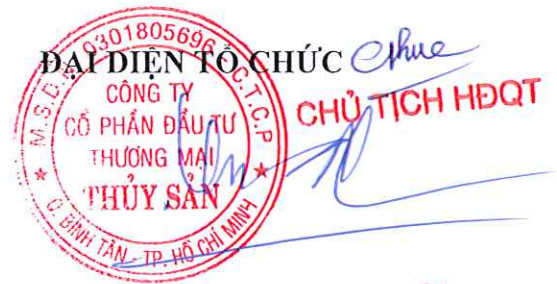 ĐẠI DIỆN TỔ CHỨC
CHỦ TỊCH HĐQT
M.S.D.N: 0301805696 - C.T.C.P
CÔNG TY
CỔ PHẦN ĐẦU TƯ
THƯƠNG MẠI
THỦY SẢN
Q. BÌNH TÂN - TP. HỒ CHÍ MINH